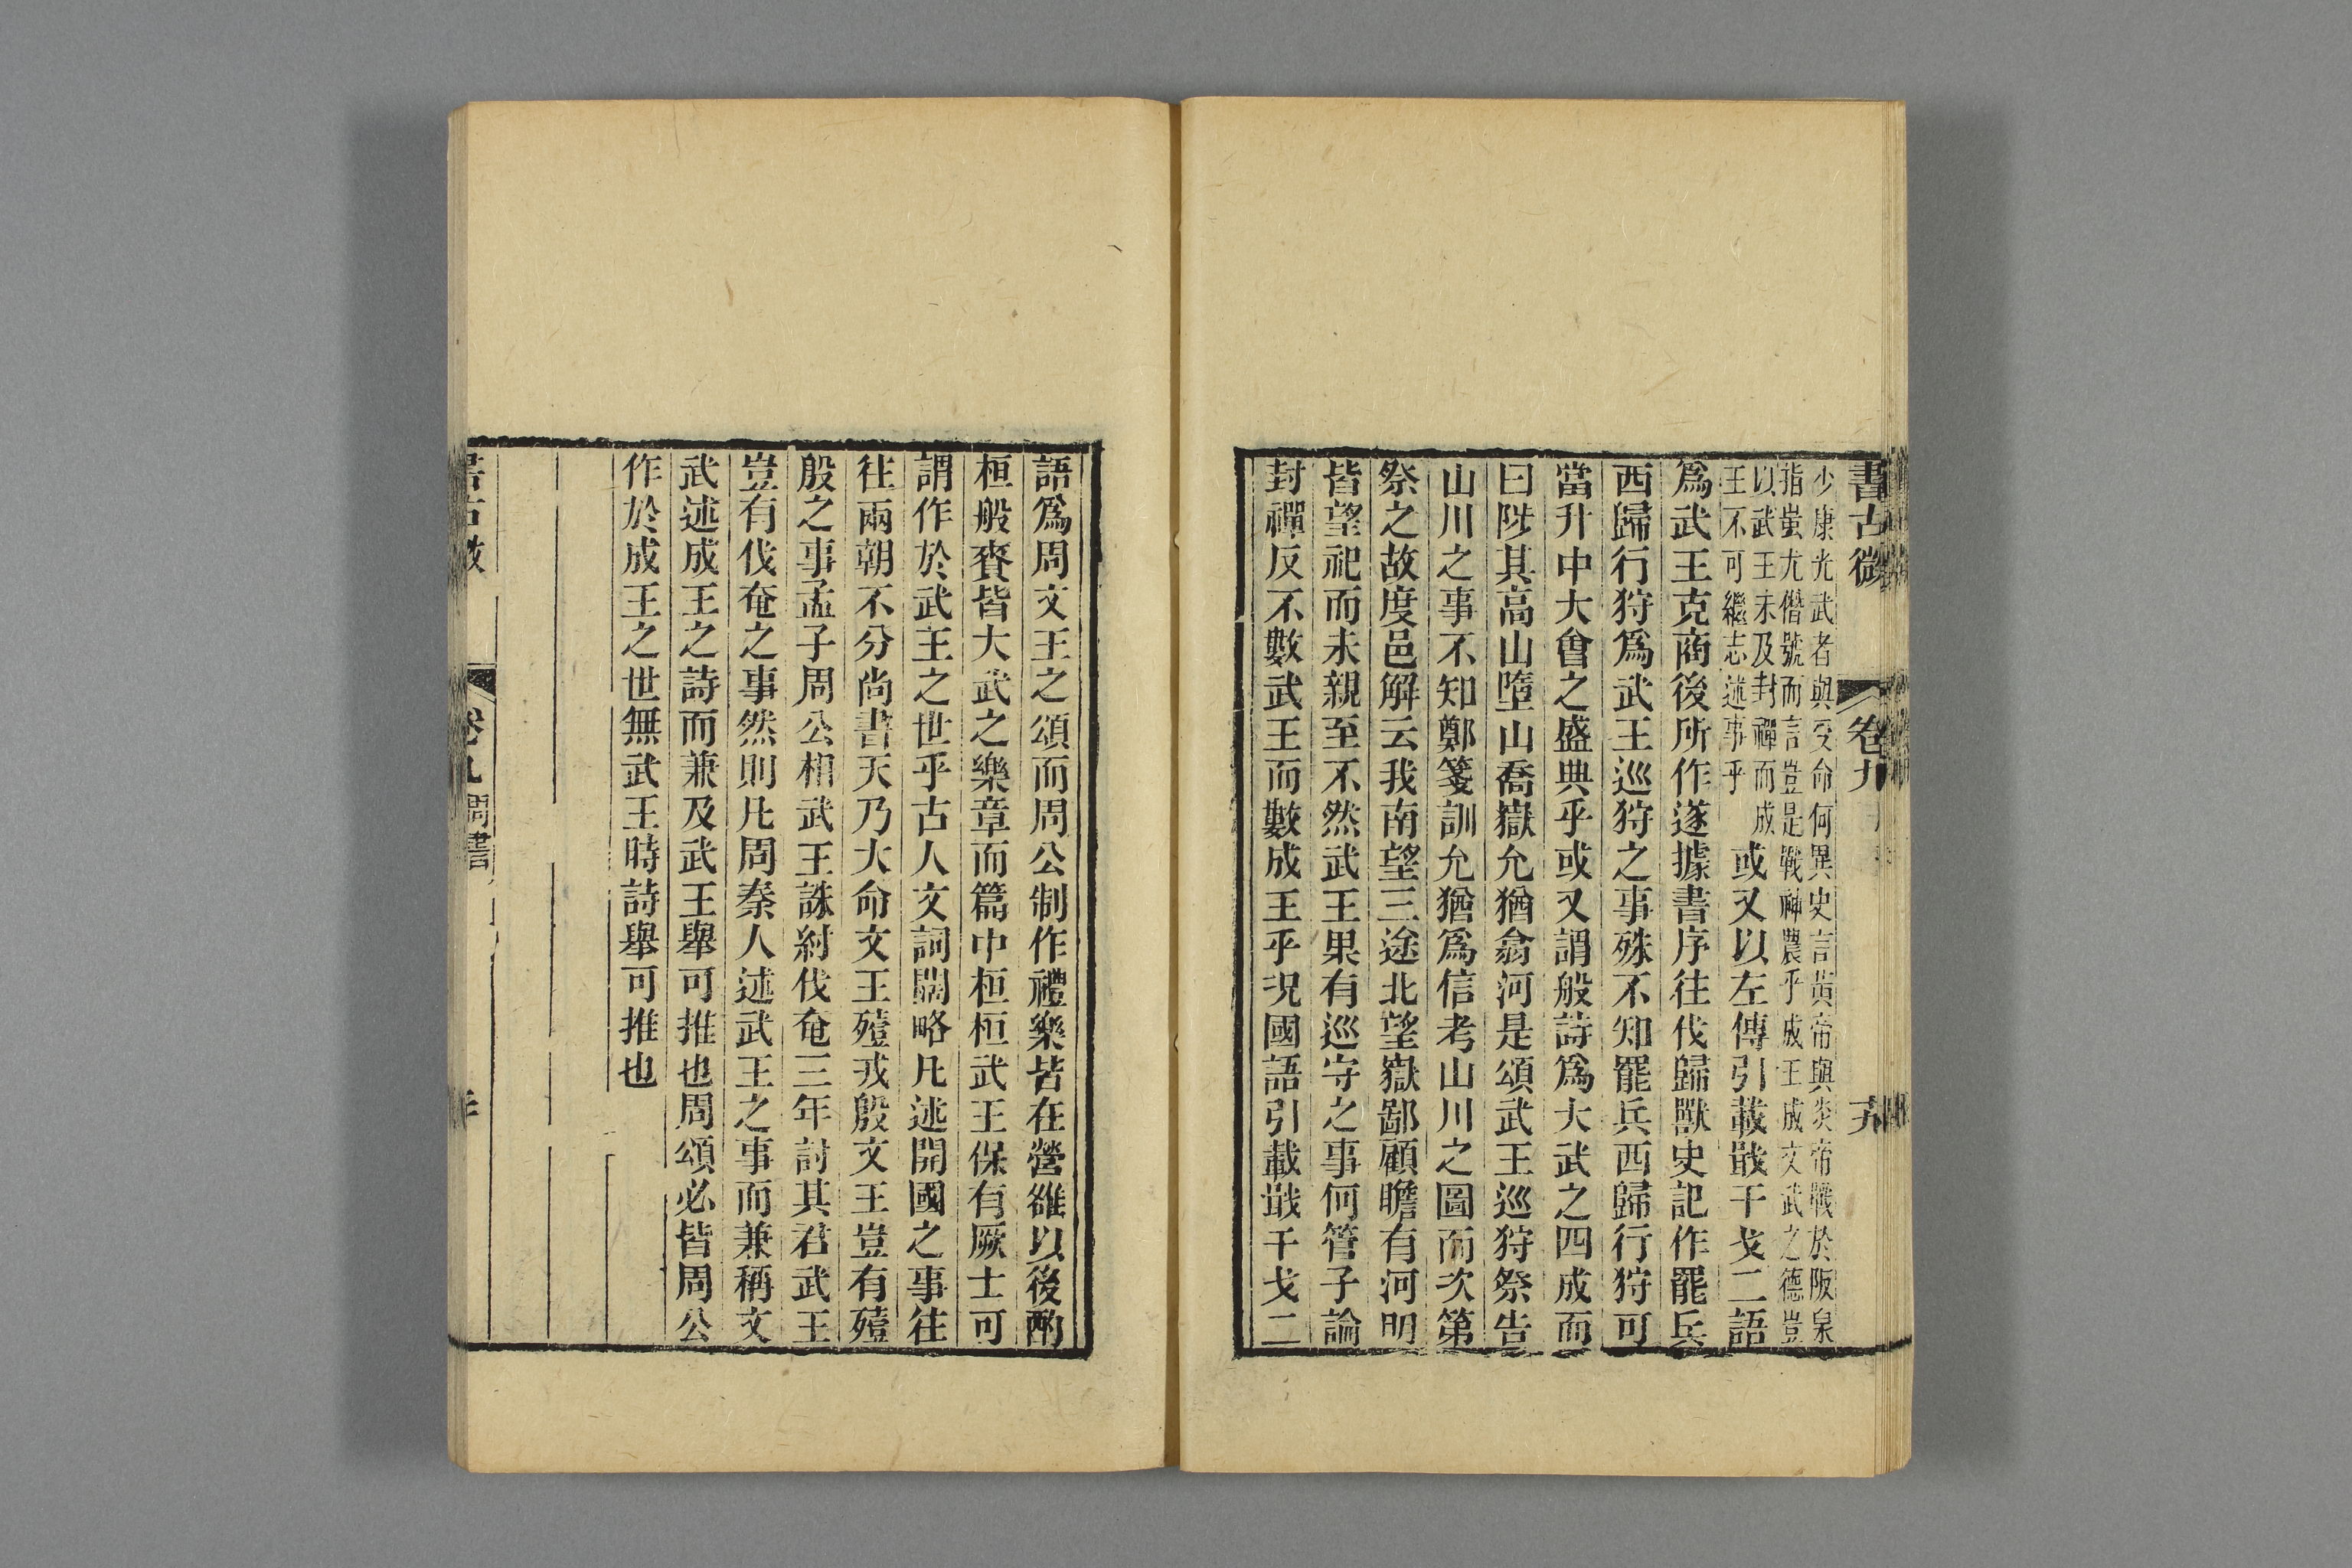 書古微 卷九 十九
少康光武者與受命何異史言黃帝與炎帝戰於阪泉
指蚩尤僭號而言豈是戰神農乎成王成文武之德豈
以武王未及封禪而成
王不可繼志述事乎
或又以左傳引載戢干戈二語
爲武王克商後所作遂據書序往伐歸獸史記作罷兵
西歸行狩爲武王巡狩之事殊不知罷兵西歸行狩可
當升中大會之盛典乎或又謂般詩爲大武之四成而
曰陟其高山墮山喬嶽允猶翕河是頌武王巡狩祭告
山川之事不知鄭箋訓允猶爲信考山川之圖而次第
祭之故度邑解云我南望三途北望嶽鄙顧瞻有河明
皆望祀而未親至不然武王果有巡守之事何管子論
封禪反不數武王而數成王乎況國語引載戢干戈二
語爲周文王之頌而周公制作禮樂皆在營雒以後酌
桓般賚皆大武之樂章而篇中桓桓武王保有厥士可
謂作於武王之世乎古人文詞闊略凡述開國之事往
往兩朝不分尚書天乃大命文王殪戎殷文王豈有殪
殷之事孟子周公相武王誅紂伐奄三年討其君武王
豈有伐奄之事然則凡周秦人述武王之事而兼稱文
武述成王之詩而兼及武王舉可推也周頌必皆周公
作於成王之世無武王時詩舉可推也
書古微 卷九 周書